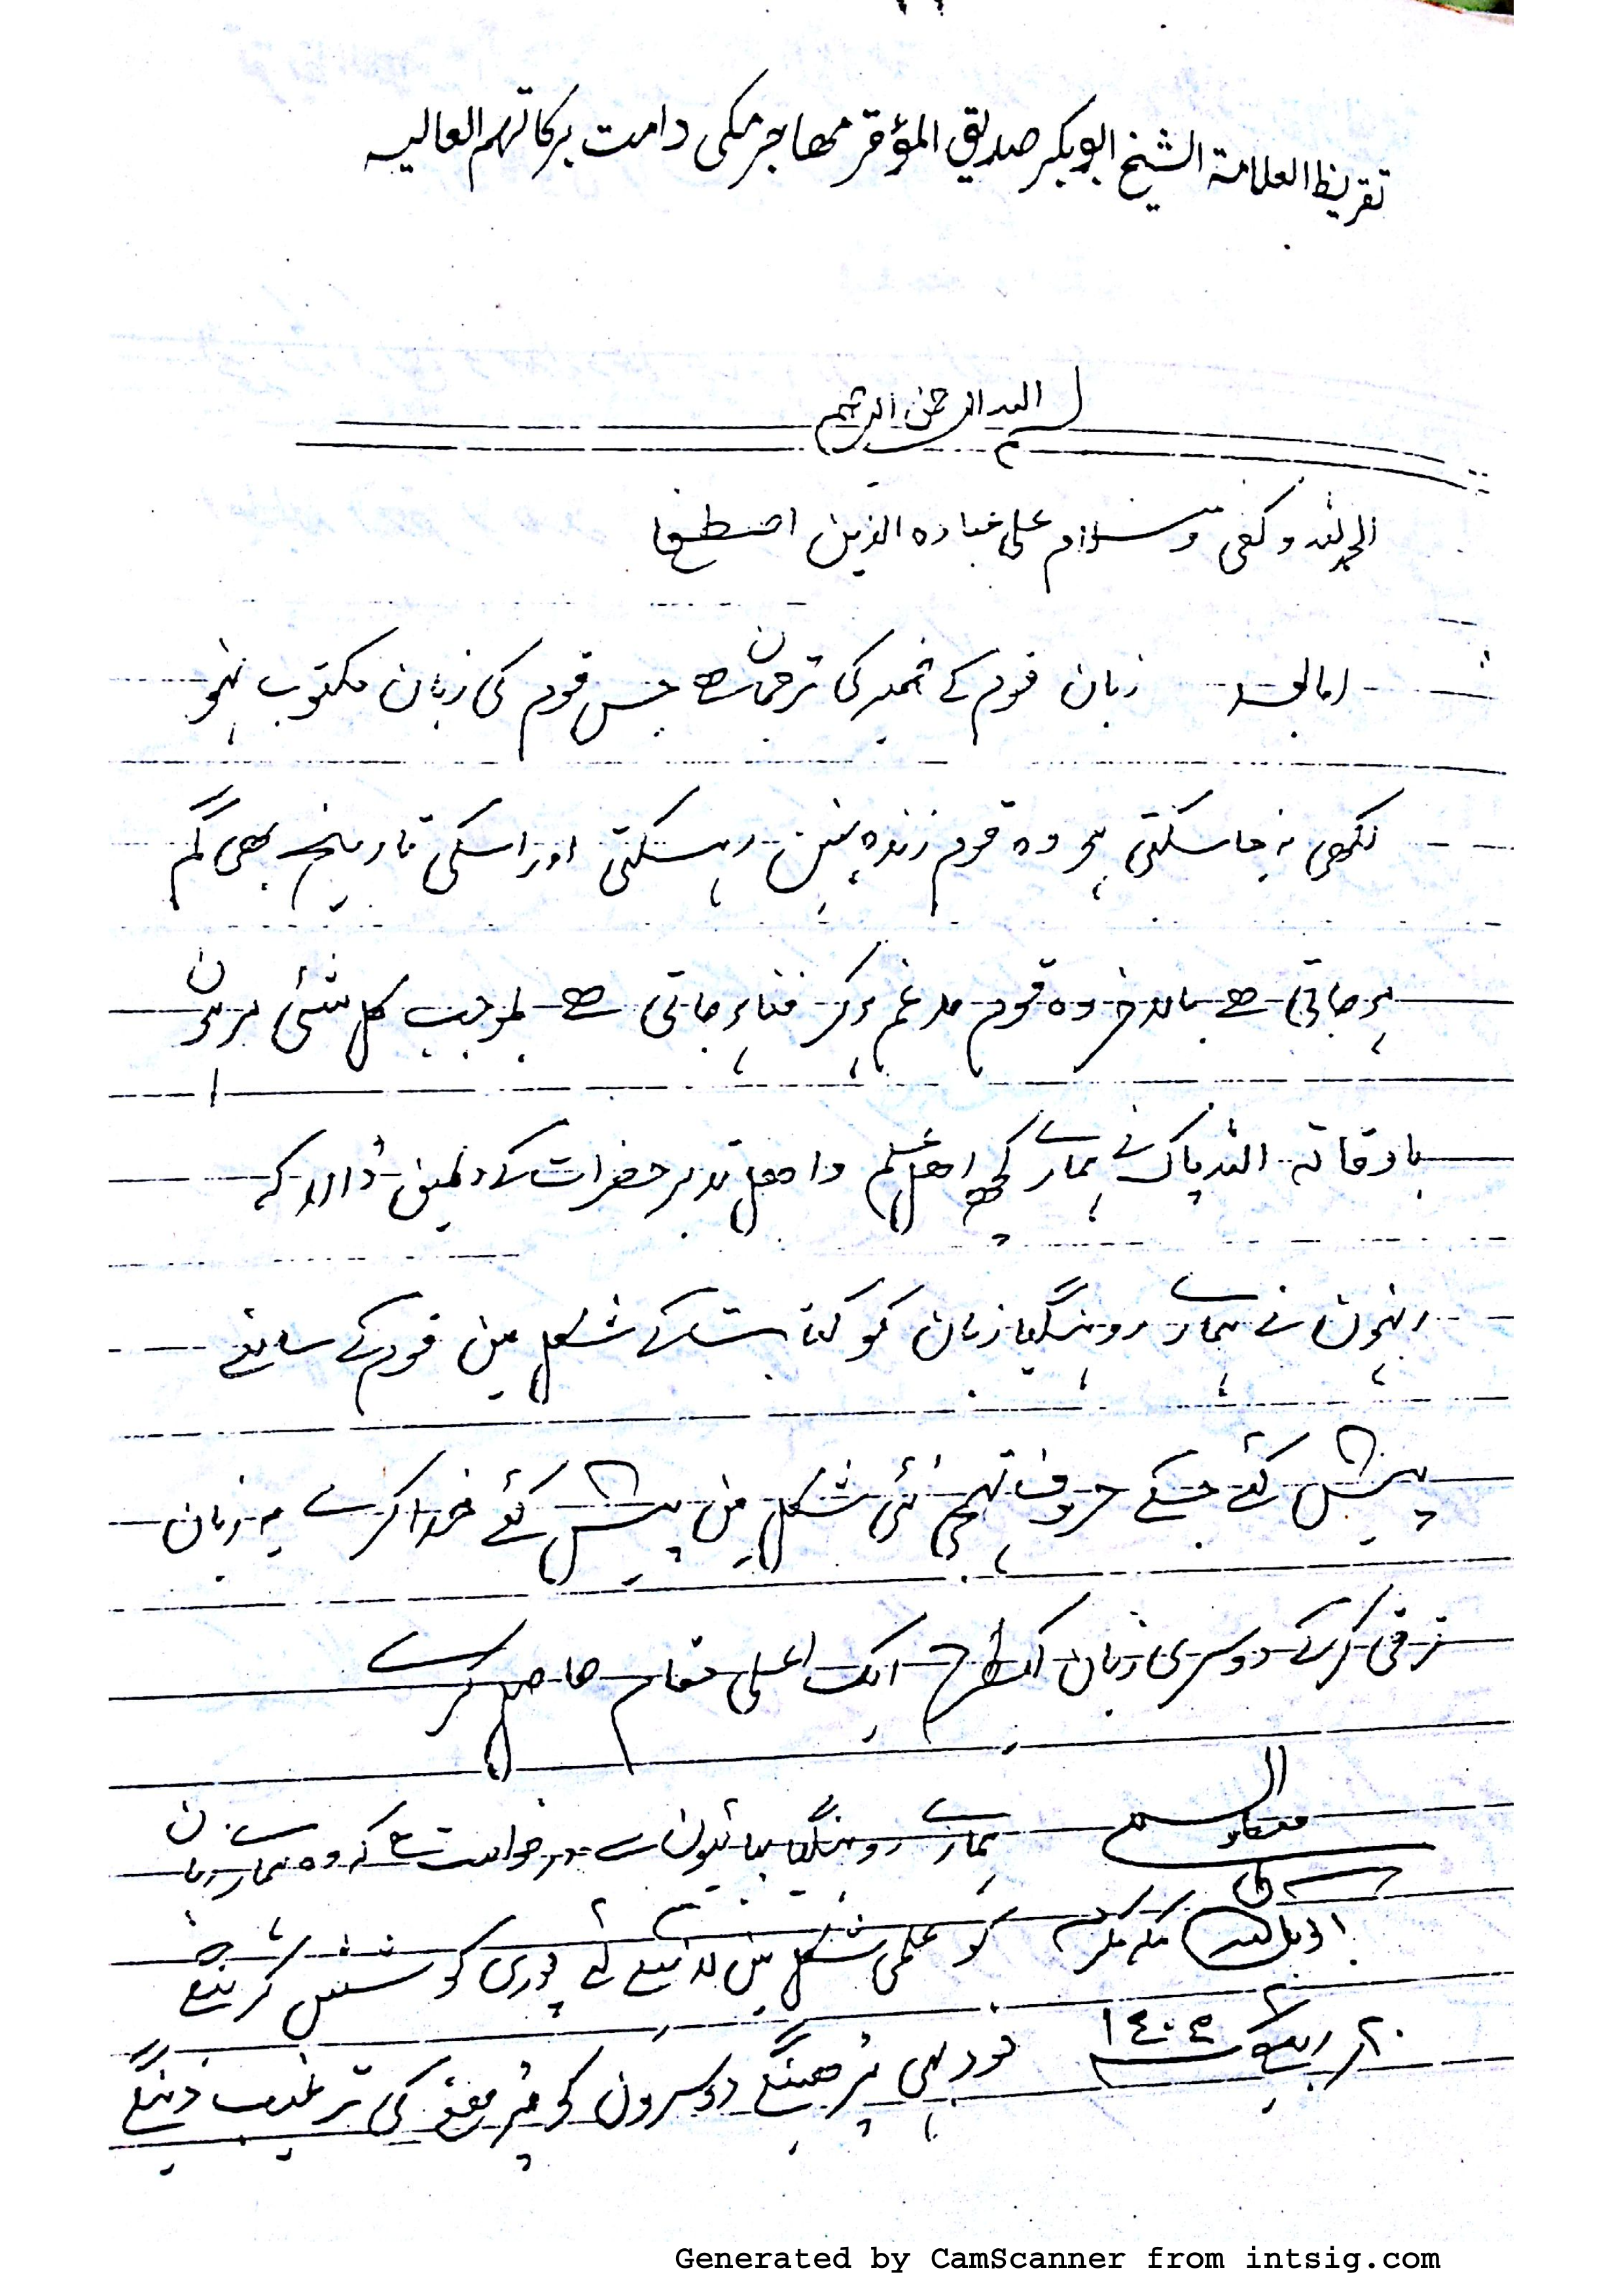 تقریظ العلامۃ الشیخ ابو بکر صدیق المؤقر مھاجر مکی دامت برکاتہم العالیہ
بسم اللہ الرحمن الرحیم
الحمد للہ وکفی وسلام علی عبادہ الذین اصطفا
اما بعد زبان قوم کے ضمیر کی ترجمان ھے جس قوم کی زبان مکتوب نہو
لکھی نہ جا سکتی ہو وہ قوم زندہ نہین رہ سکتی اور اسکی تاریخ بھی گم
ہو جاتی ھے بالاخر وہ قوم مدغم ہوکر فناء ہو جاتی ھے بموجب کل شئی مرہون
باوقاتہ اللہ پاک نے ہمارے کچھ اھل علم واھل تدبر حضرات کے دلمین ڈالا کہ
انہون نے ہمارے روہنگیا زبان کو کتابت کے شکل مین قوم کے سامنے
پیش کئے جسکے حروف تہجی نئی شکل مین پیش کئے خدا کرے یہ زبان
ترقی کرکے دوسری زبان کیطرح ایک اعلی مقام حاصل کرے
والسلام
ہمارے روہنگیا بھائیون سے درخواست ھے کہ وہ ہمارے زبان
مکہ مکرمہ
کو علمی شکل مین لانیکے لئے پوری کوشش کرینگے
۲۰ ربیع ١٤٠٥
خود بھی پڑھینگے دوسرون کو پڑھنے کی ترغیب دینگے
Generated by CamScanner from intsig.com